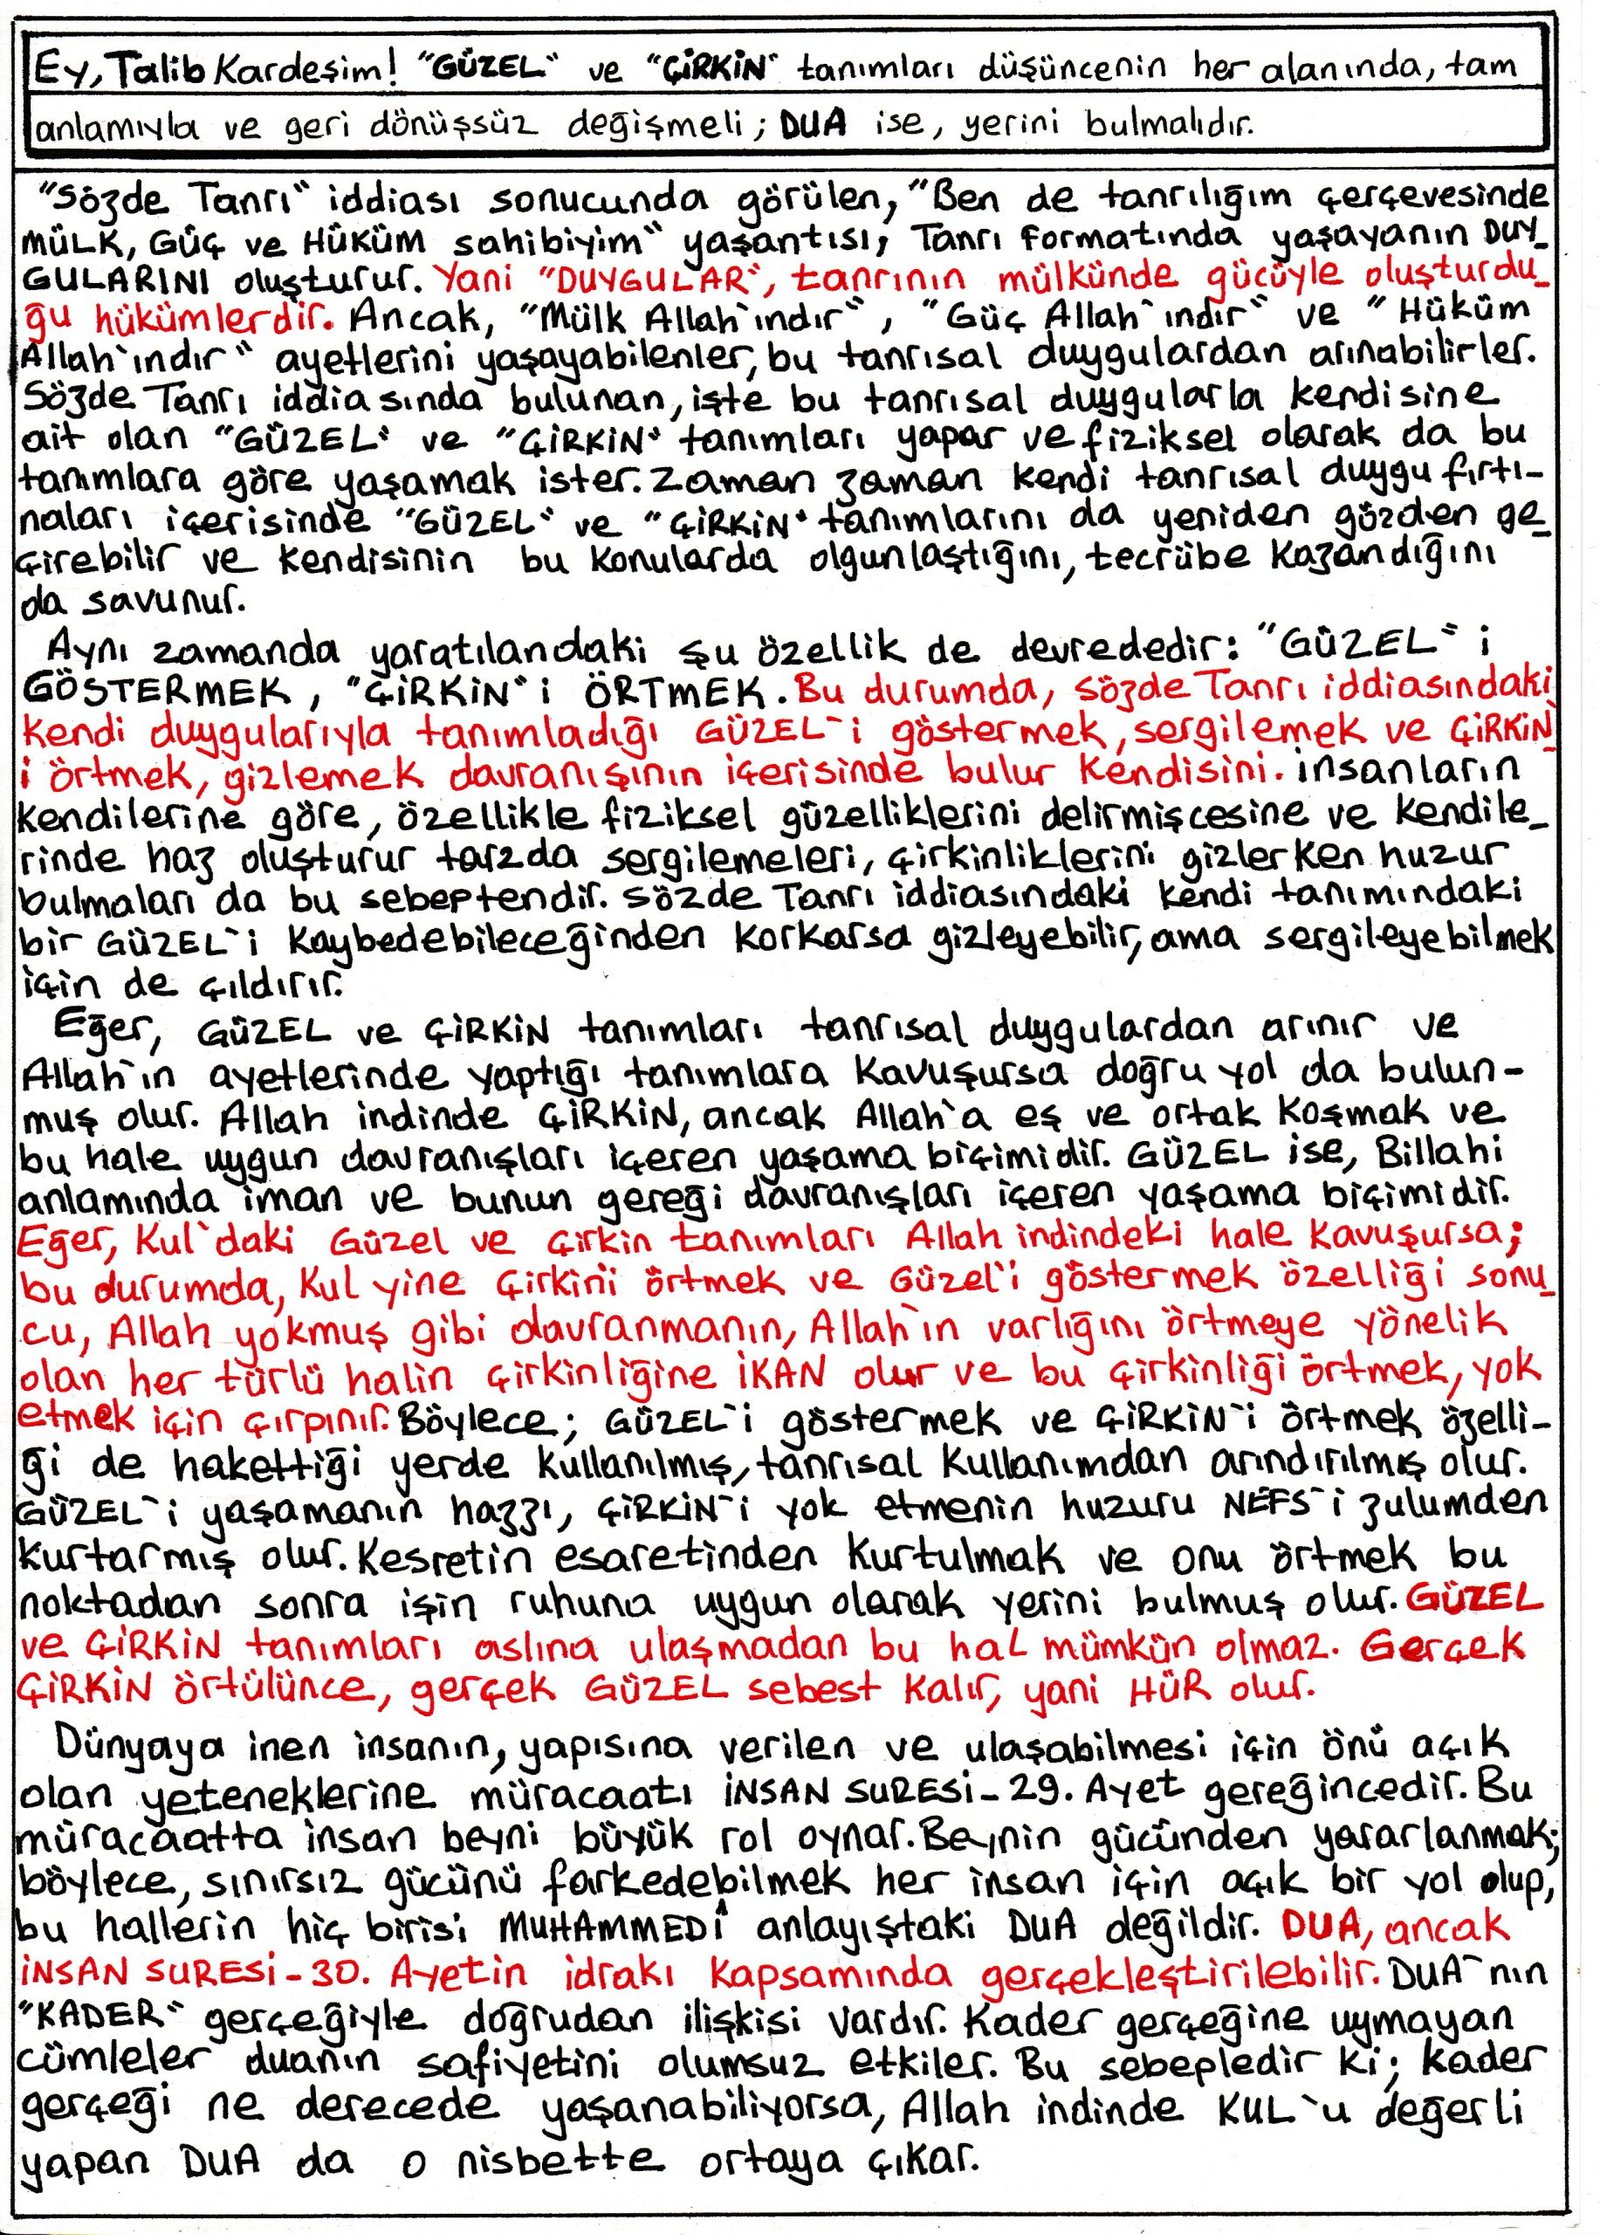 Ey, Talib Kardeşim! "GÜZEL" ve "ÇİRKİN" tanımları düşüncenin her alanında, tam
anlamıyla ve geri dönüşsüz değişmeli; DUA ise, yerini bulmalıdır.
"Sözde Tanrı" iddiası sonucunda görülen, "Ben de tanrılığım çerçevesinde
MÜLK, GÜÇ ve HÜKÜM sahibiyim" yaşantısı; Tanrı formatında yaşayanın DUY_
GULARINI oluşturur. Yani "DUYGULAR", tanrının mülkünde gücüyle oluşturdu_
ğu hükümlerdir. Ancak, "Mülk Allah'ındır", "Güç Allah'ındır" ve "Hüküm
Allah'ındır" ayetlerini yaşayabilenler, bu tanrısal duygulardan arınabilirler.
Sözde Tanrı iddiasında bulunan, işte bu tanrısal duygularla kendisine
ait olan "GÜZEL" ve "ÇİRKİN" tanımları yapar ve fiziksel olarak da bu
tanımlara göre yaşamak ister. Zaman zaman kendi tanrısal duygu fırtı-
naları içerisinde "GÜZEL" ve "ÇİRKİN" tanımlarını da yeniden gözden ge_
çirebilir ve kendisinin bu konularda olgunlaştığını, tecrübe kazandığını
da savunur.
Aynı zamanda yaratılandaki şu özellik de devrededir: "GÜZEL" i
GÖSTERMEK, "ÇİRKİN" i ÖRTMEK. Bu durumda, sözde Tanrı iddiasındaki
kendi duygularıyla tanımladığı GÜZEL'i göstermek, sergilemek ve ÇİRKİN'
i örtmek, gizlemek davranışının içerisinde bulur kendisini. İnsanların
kendilerine göre, özellikle fiziksel güzelliklerini delirmişcesine ve kendile_
rinde haz oluşturur tarzda sergilemeleri, çirkinliklerini gizlerken huzur
bulmaları da bu sebeptendir. Sözde Tanrı iddiasındaki kendi tanımındaki
bir GÜZEL'i kaybedebileceğinden korkarsa gizleyebilir, ama sergileyebilmek
için de çıldırır.
Eğer, GÜZEL ve ÇİRKİN tanımları tanrısal duygulardan arınır ve
Allah'ın ayetlerinde yaptığı tanımlara kavuşursa doğru yol da bulun-
muş olur. Allah indinde ÇİRKİN, ancak Allah'a eş ve ortak koşmak ve
bu hale uygun davranışları içeren yaşama biçimidir. GÜZEL ise, Billahi
anlamında iman ve bunun gereği davranışları içeren yaşama biçimidir.
Eğer, Kul'daki Güzel ve Çirkin tanımları Allah indindeki hale kavuşursa;
bu durumda, Kul yine Çirkin'i örtmek ve Güzel'i göstermek özelliği sonu_
cu, Allah yokmuş gibi davranmanın, Allah'ın varlığını örtmeye yönelik
olan her türlü halin çirkinliğine İKAN olur ve bu çirkinliği örtmek, yok
etmek için çırpınır. Böylece; GÜZEL'i göstermek ve ÇİRKİN'i örtmek özelli-
ği de hakettiği yerde kullanılmış, tanrısal kullanımdan arındırılmış olur.
GÜZEL'i yaşamanın hazzı, ÇİRKİN'i yok etmenin huzuru NEFS'i zulumden
kurtarmış olur. Kesretin esaretinden kurtulmak ve onu örtmek bu
noktadan sonra işin ruhuna uygun olarak yerini bulmuş olur. GÜZEL
ve ÇİRKİN tanımları aslına ulaşmadan bu hal mümkün olmaz. Gerçek
ÇİRKİN örtülünce, gerçek GÜZEL sebest kalır, yani HÜR olur.
Dünyaya inen insanın, yapısına verilen ve ulaşabilmesi için önü açık
olan yeteneklerine müracaatı İNSAN SURESİ-29. Ayet gereğincedir. Bu
müracaatta insan beyni büyük rol oynar. Beynin gücünden yararlanmak;
böylece, sınırsız gücünü farkedebilmek her insan için açık bir yol olup,
bu hallerin hiç birisi MUHAMMEDÎ anlayıştaki DUA değildir. DUA, ancak
İNSAN SURESİ-30. Ayetin idrakı kapsamında gerçekleştirilebilir. DUA'nın
"KADER" gerçeğiyle doğrudan ilişkisi vardır. Kader gerçeğine uymayan
cümleler duanın safiyetini olumsuz etkiler. Bu sebepledir ki; kader
gerçeği ne derecede yaşanabiliyorsa, Allah indinde KUL'u değerli
yapan DUA da o nisbette ortaya çıkar.